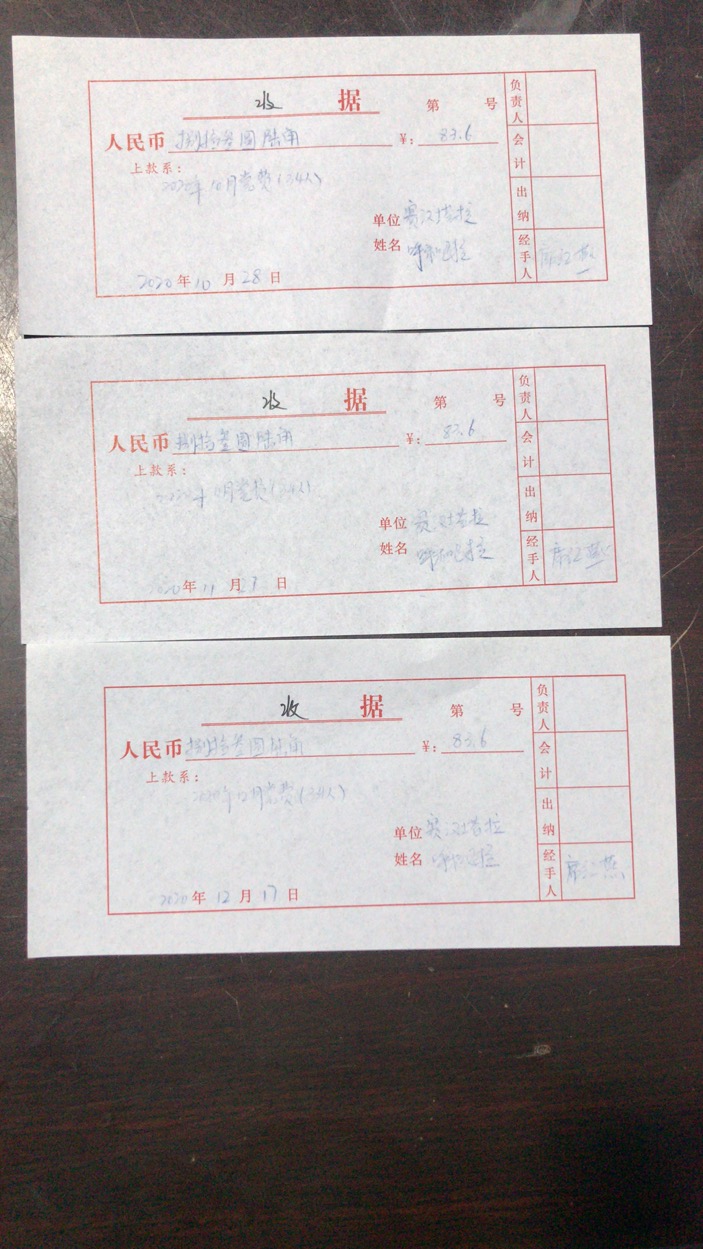 收 据
第 号
人民币 捌拾叁圆陆角 ¥: 83.6
上款系:
2020年10月党费(34人)
单位 赛汉塔拉
姓名
2020年10月28日
负责人
会计
出纳
经手人
收 据
第 号
人民币 捌拾叁圆陆角 ¥: 83.6
上款系:
单位 赛汉塔拉
姓名
2020年11月 日
负责人
会计
出纳
经手人
收 据
第 号
人民币 捌拾叁圆陆角 ¥: 83.6
上款系:
2020年12月党费(34人)
单位 赛汉塔拉
姓名
2020年12月17日
负责人
会计
出纳
经手人